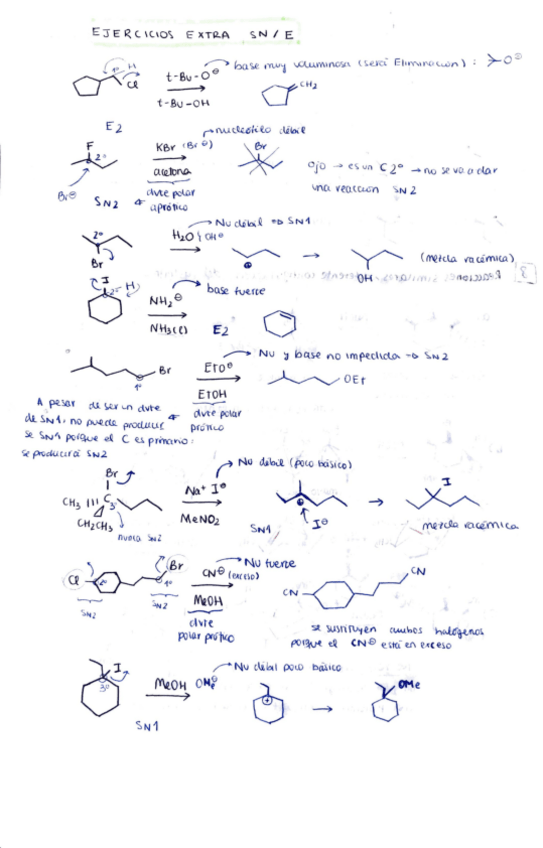 EJERCICIOS EXTRA SN/E
H
1º
Cl
t-Bu-O⊖
t-Bu-OH
base muy voluminosa (será Eliminación): O⊖
CH2
E2
F
2º
Br⊖
SN2
KBr (Br⊖)
acetona
dvte polar
aprótico
nucleófilo débil
Br
ojo → es un C2º → no se va a dar
una reacción SN2
2º
Br
H2O
Nu débil → SN1
⊕
OH
(mezcla racémica)
I
H
NH2⊖
NH3(l)
base fuerte
E2
Br
1º
EtO⊖
EtOH
dvte polar
prótico
Nu y base no impedida → SN2
OEt
A pesar de ser un dvte
de SN1, no puede producir
se SN1 porque el C es primario:
se producirá SN2
Br
CH3 C
3º
CH2CH3
nunca SN2
Na+ I⊖
MeNO2
Nu débil (poco básico)
SN1
⊕
I⊖
I
mezcla racémica
Cl
2º
SN2
Br
1º
SN2
CN⊖ (exceso)
MeOH
dvte
polar prótico
Nu fuerte
CN
CN
se sustituyen ambos halógenos
porque el CN⊖ está en exceso
I
3º
MeOH
Nu débil poco básico
⊕
OMe
SN1